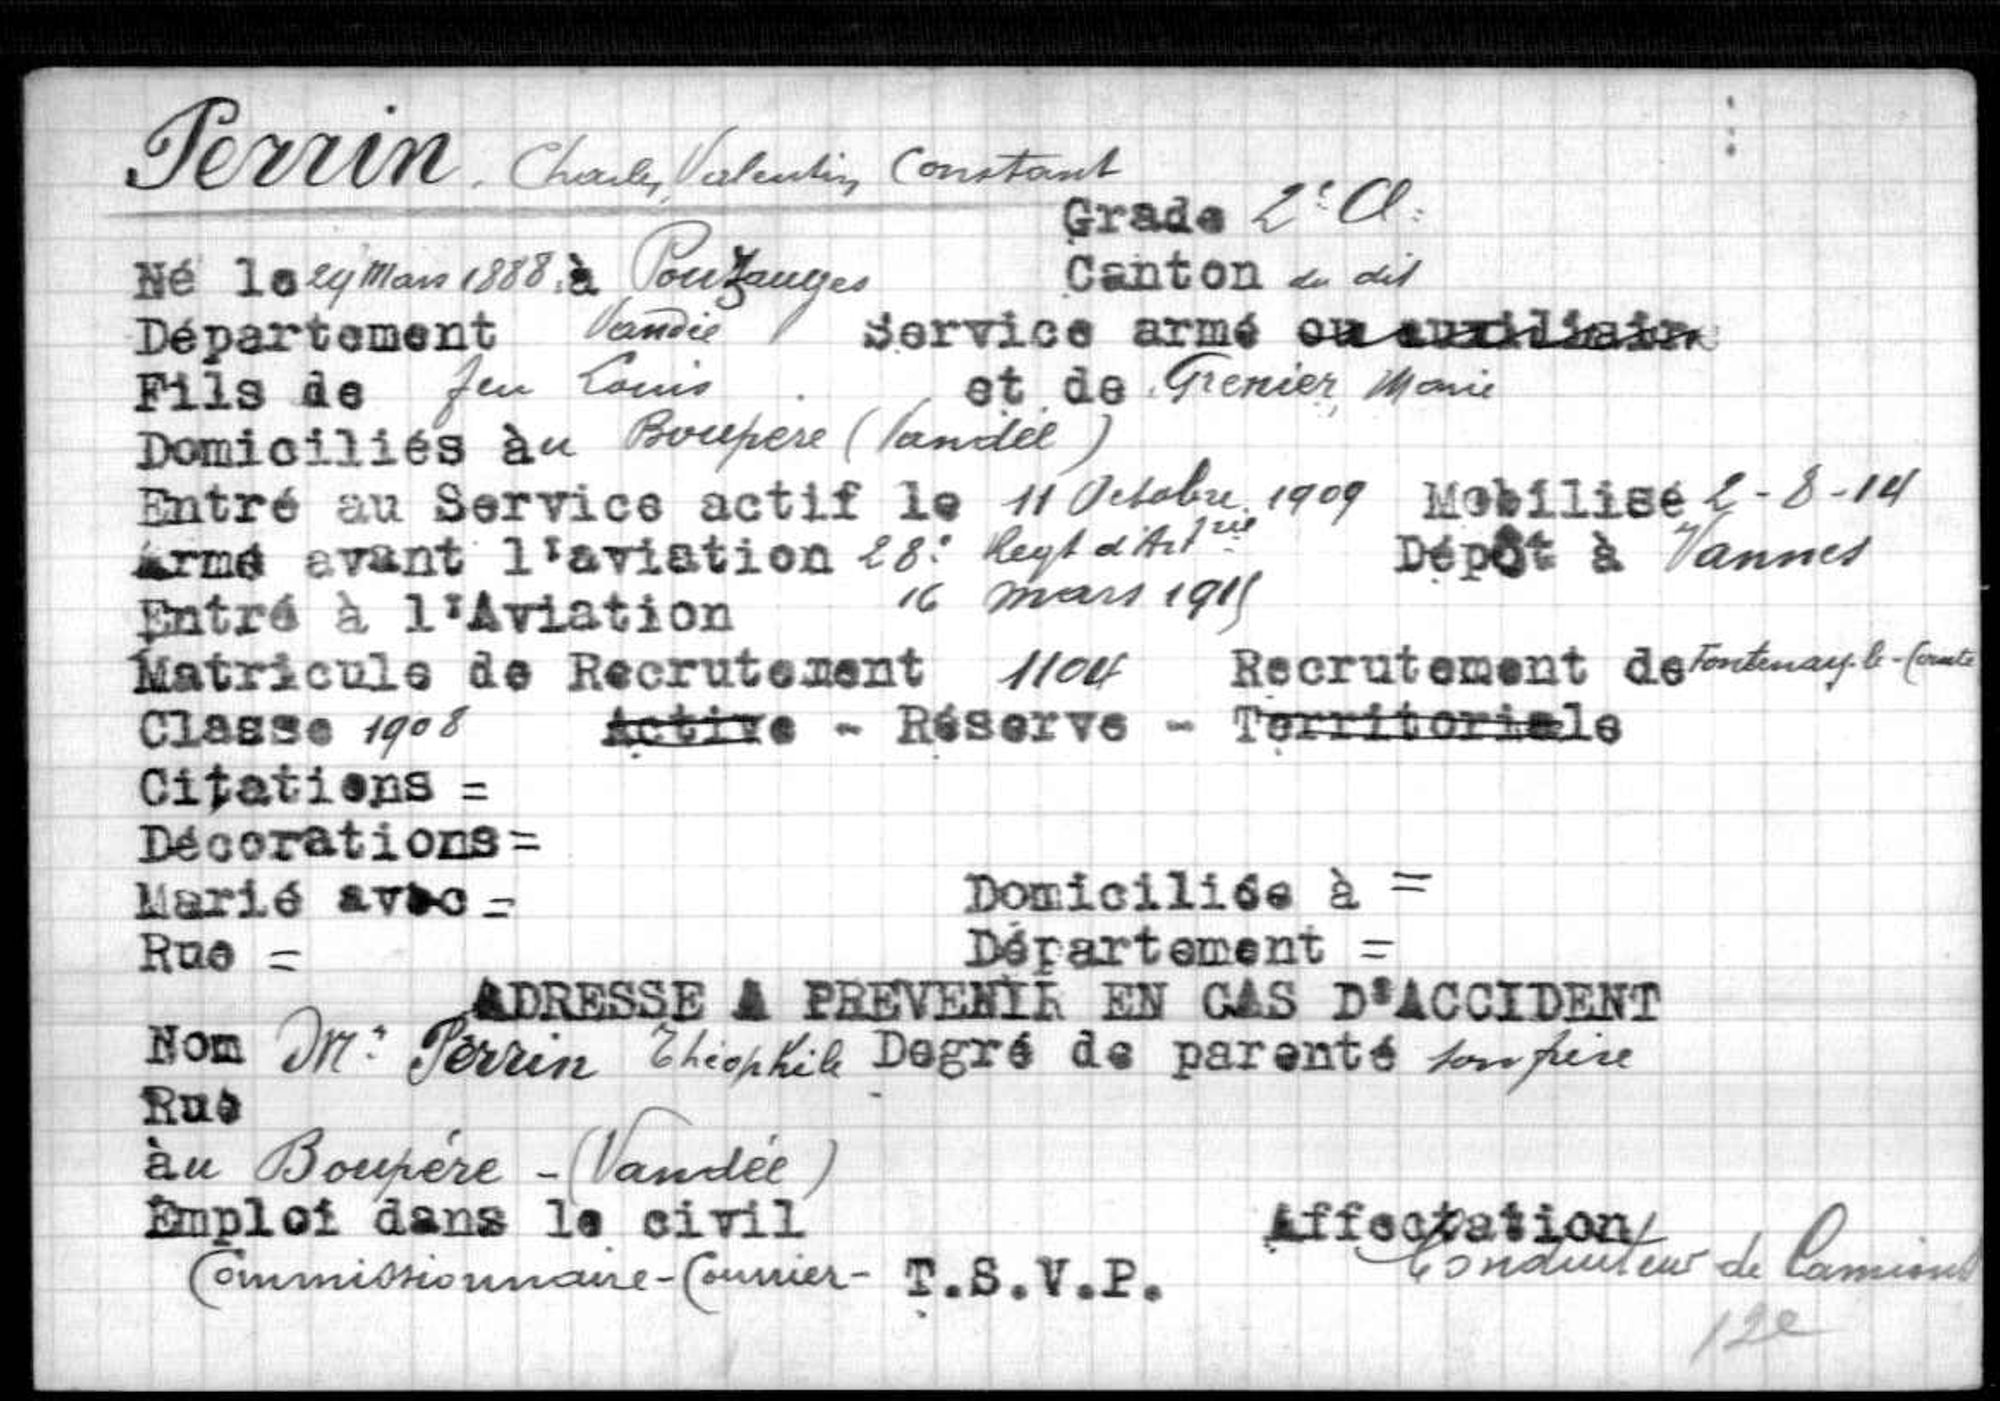 Perrin. Charles, Valentin, Constant
Grade 2e Cl.
Né le 29 Mars 1888 à Pouzauges Canton du dit
Département Vendée Service armé ou auxiliaire
Fils de feu Louis et de Grenier, Marie
Domiciliés àu Boupère (Vendée)
Entré au Service actif le 11 Octobre 1909 Mobilisé 2-8-14
Arme avant l'aviation 28e Regt d'Artrie Dépôt à Vannes
Entré à l'Aviation 16 mars 1915
Matricule de Recrutement 1104 Recrutement de Fontenay-le-Comte
Classe 1908 Active - Réserve - Territoriale
Citations =
Décorations =
Marié avec = Domiciliée à =
Rue = Département =
ADRESSE A PREVENIR EN CAS D'ACCIDENT
Nom Mr Perrin Théophile Degré de parenté son frère
Rue
àu Boupère - (Vendée)
Emploi dans le civil Affectation
Commissionnaire-Courrier- T.S.V.P. Conducteur de Camions